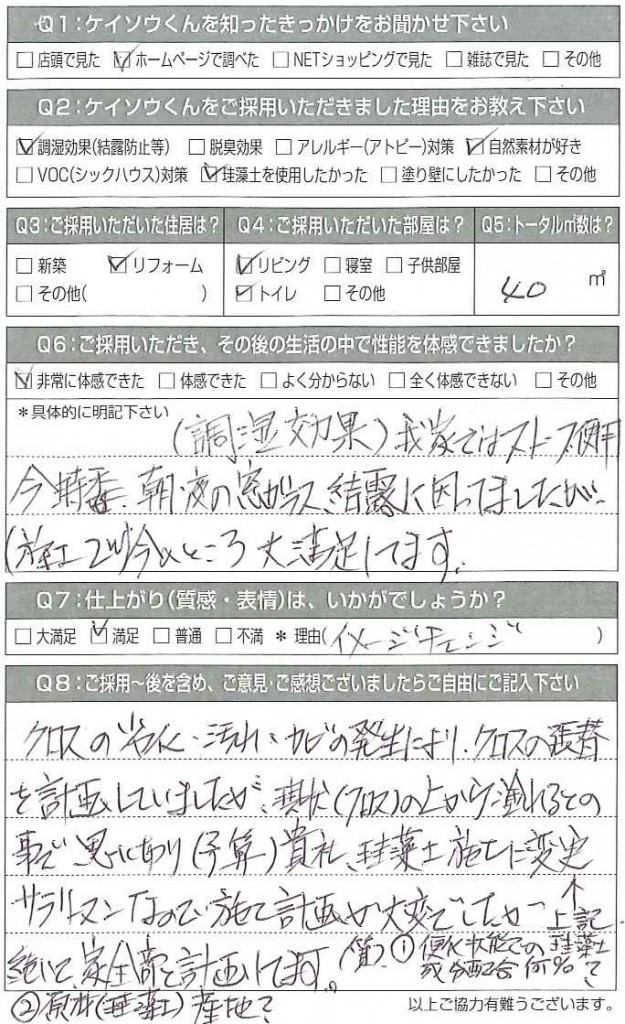 Q1：ケイソウくんを知ったきっかけをお聞かせ下さい
□店頭で見た ☑ホームページで調べた □NETショッピングで見た □雑誌で見た □その他
Q2：ケイソウくんをご採用いただきました理由をお教え下さい
☑調湿効果(結露防止等) □脱臭効果 □アレルギー(アトピー)対策 ☑自然素材が好き
□VOC(シックハウス)対策 ☑珪藻土を使用したかった □塗り壁にしたかった □その他
Q3：ご採用いただいた住居は？ Q4：ご採用いただいた部屋は？ Q5：トータル㎡数は？
□新築 ☑リフォーム ☑リビング □寝室 □子供部屋
□その他( ) ☑トイレ □その他 40 ㎡
Q6：ご採用いただき、その後の生活の中で性能を体感できましたか？
☑非常に体感できた □体感できた □よく分からない □全く体感できない □その他
＊具体的に明記下さい
(調湿効果)我家ではストーブ使用
今時季、朝・夜の窓ガラス、結露に困ってましたが、
今のところ大満足してます。
Q7：仕上がり(質感・表情)は、いかがでしょうか？
□大満足 ☑満足 □普通 □不満 ＊理由(イメージチェンジ)
Q8：ご採用～後を含め、ご意見・ご感想ございましたらご自由にご記入下さい
クロスの劣化・汚れ・カビの発生により、クロスの張替
を計画していましたが、現状(クロス)の上から塗れるとの
事で (予算)貴社、珪藻土施工に変更
サラリーマンなので施工計画が大変でしたが ↑上記
続いて、家全部を計画してます。(質)① での珪藻土
配合何%？
②原料(珪藻土)産地？
以上ご協力有難うございます。